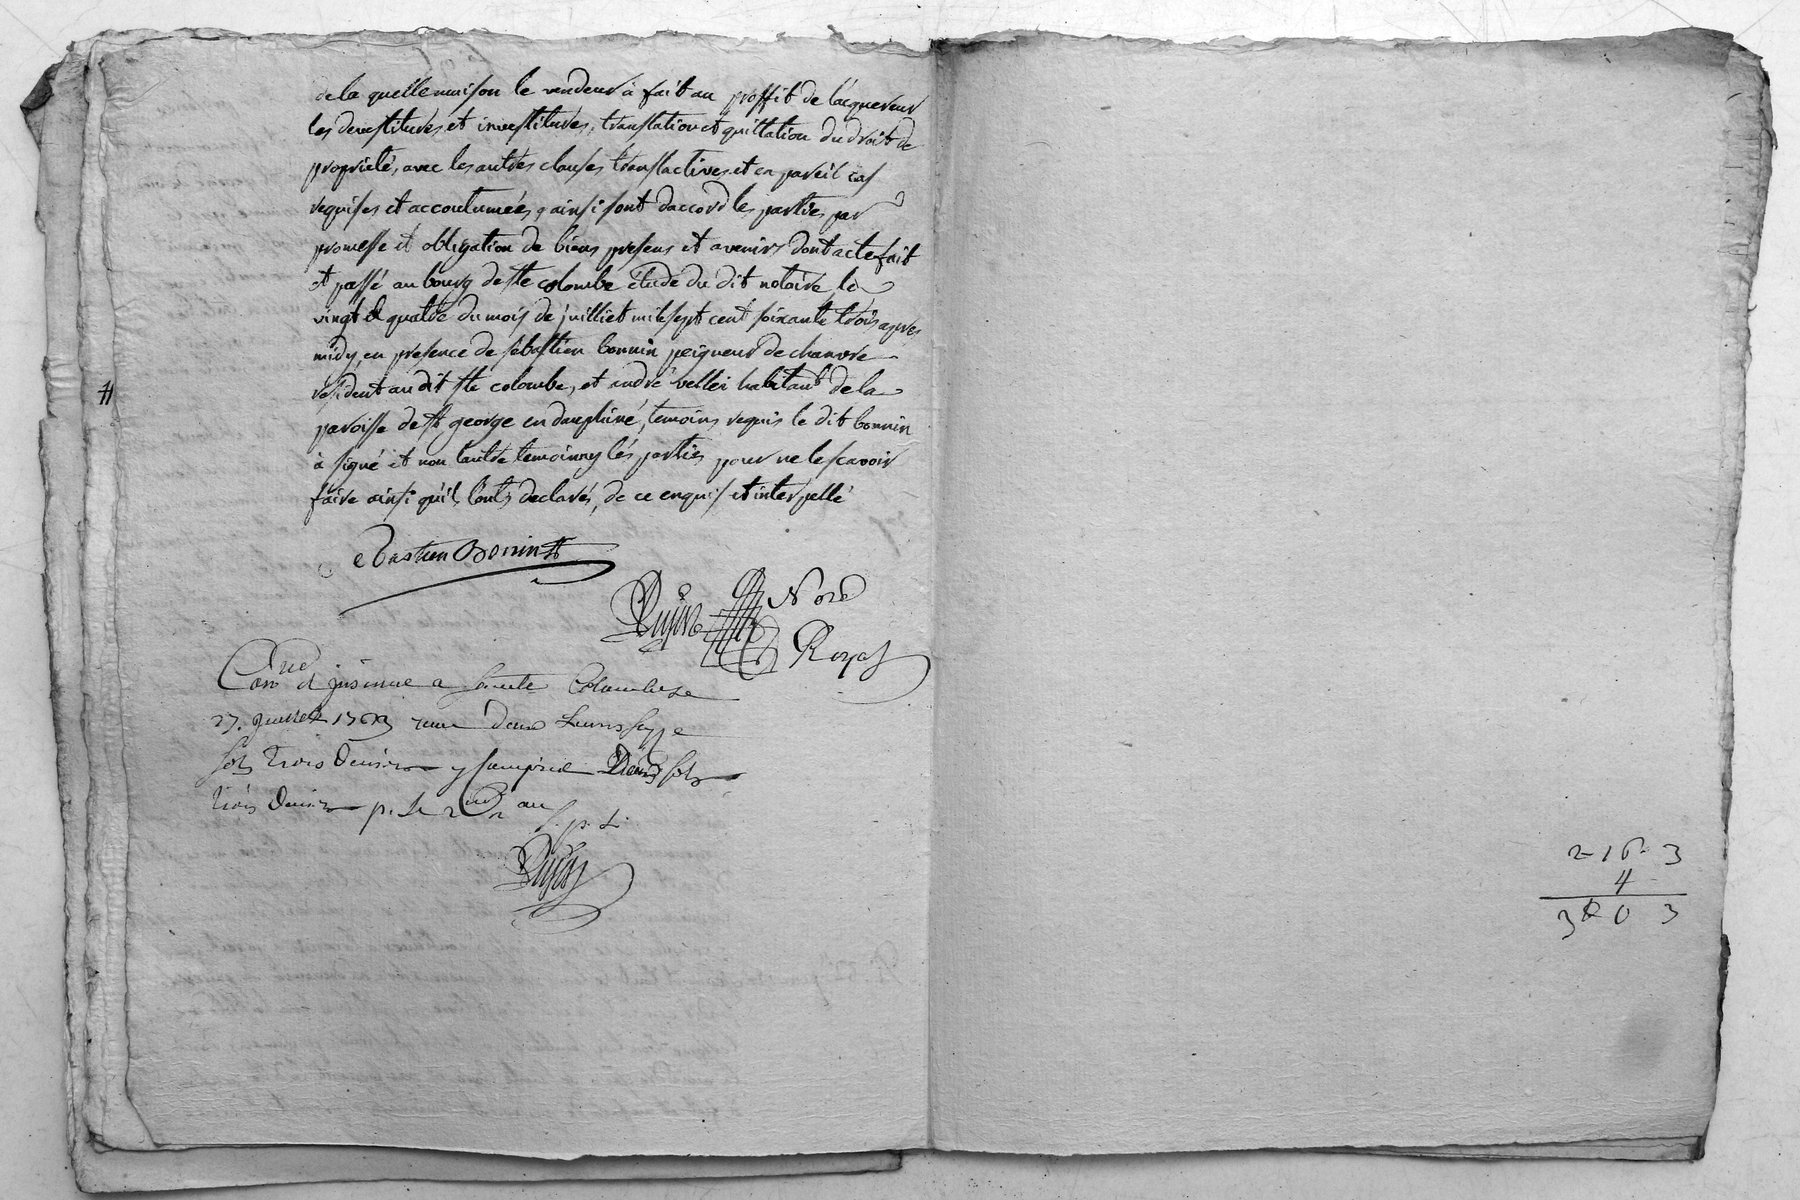 de la quelle maison le vendeur à fait au proffit de lacquereur
les devestitures et investitures, translation et quittation du droit de
propriété, avec les autres clauses translactives et en pareil cas
requises et accoutumées, ainsi sont daccord les parties par
promesse et obligation de biens presens et avenirs dont acte fait
et passé au bourg de ste colombe étude du dit notaire le
vingt et quatre du mois de juilliet mil sept cent soixante trois apres
midy, en presence de sébastien bonnin peigneur de chanvre
résident au dit ste colombe, et andré vellei habitant de la
paroisse de st george en dauphiné, temoins requis le dit bonnin
à signé et non lautre temoin ny lés parties pour ne le scavoir
faire ainsi qu'ils lont declarés, de ce enquis et interpellé
ebastien Bonin
Nore
Royal
Con et insinué a Sainte Colombe le
27. Juillet 1763 deux Livres seize
sols trois deniers y compris Deux sols
trois deniers p. Le
2 - 16 - 3
4
3 0 3